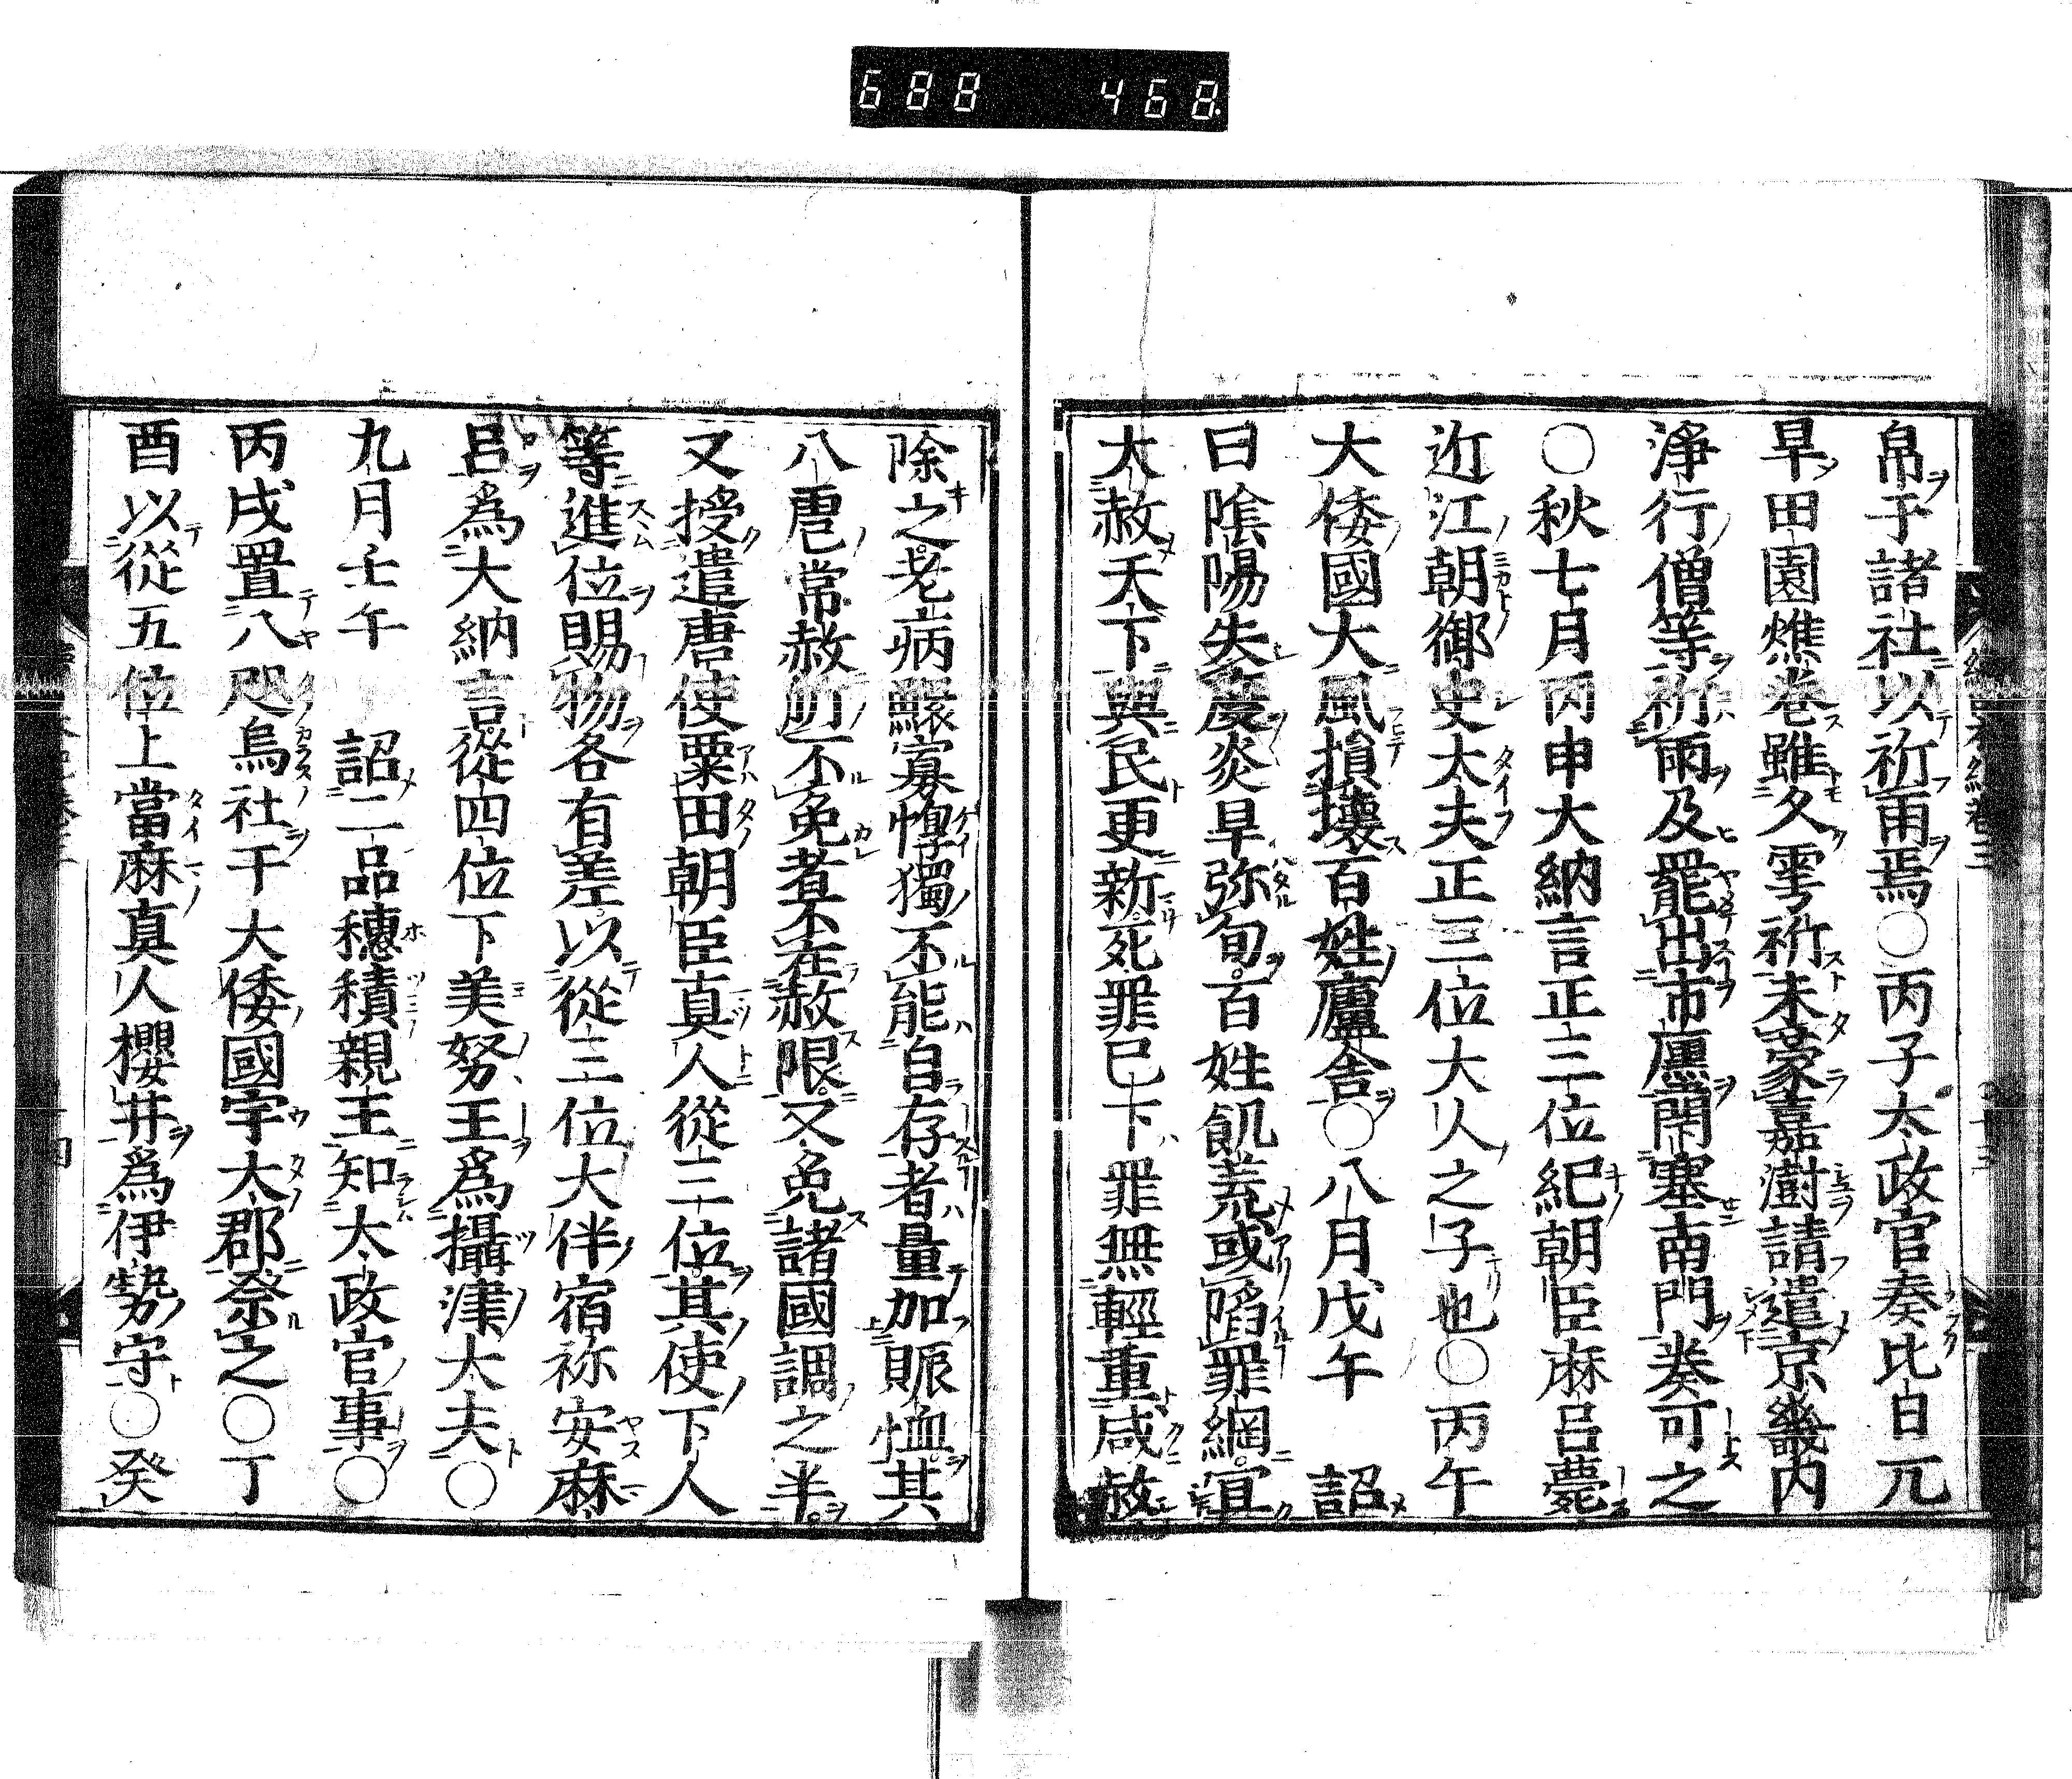 688 468
帛于諸社以祈雨焉○丙子太政官奏比日亢
旱田園燋卷雖久雩祈未蒙嘉澍請遣京畿内
淨行僧等祈雨及罷出市廛閇塞南門奏可之
○秋七月丙申大納言正三位紀朝臣麻呂薨
近江朝御史大夫正三位大人之子也○丙午
大倭國大風損壞百姓廬舍○八月戊午 詔
曰陰陽失度炎旱弥旬百姓飢荒或陷罪網宜
大赦天下與民更新死罪已下罪無輕重咸赦
除之老病鰥寡惸獨不能自存者量加賑恤其
八虐常赦所不免者不在赦限又免諸國調之半
又授遣唐使粟田朝臣真人從三位其使下人
等進位賜物各有差以從三位大伴宿祢安麻
呂爲大納言從四位下美努王爲攝津大夫○
九月壬午 詔二品穗積親王知太政官事○
丙戌置八咫烏社于大倭國宇太郡祭之○丁
酉以從五位上當麻真人櫻井爲伊勢守○癸